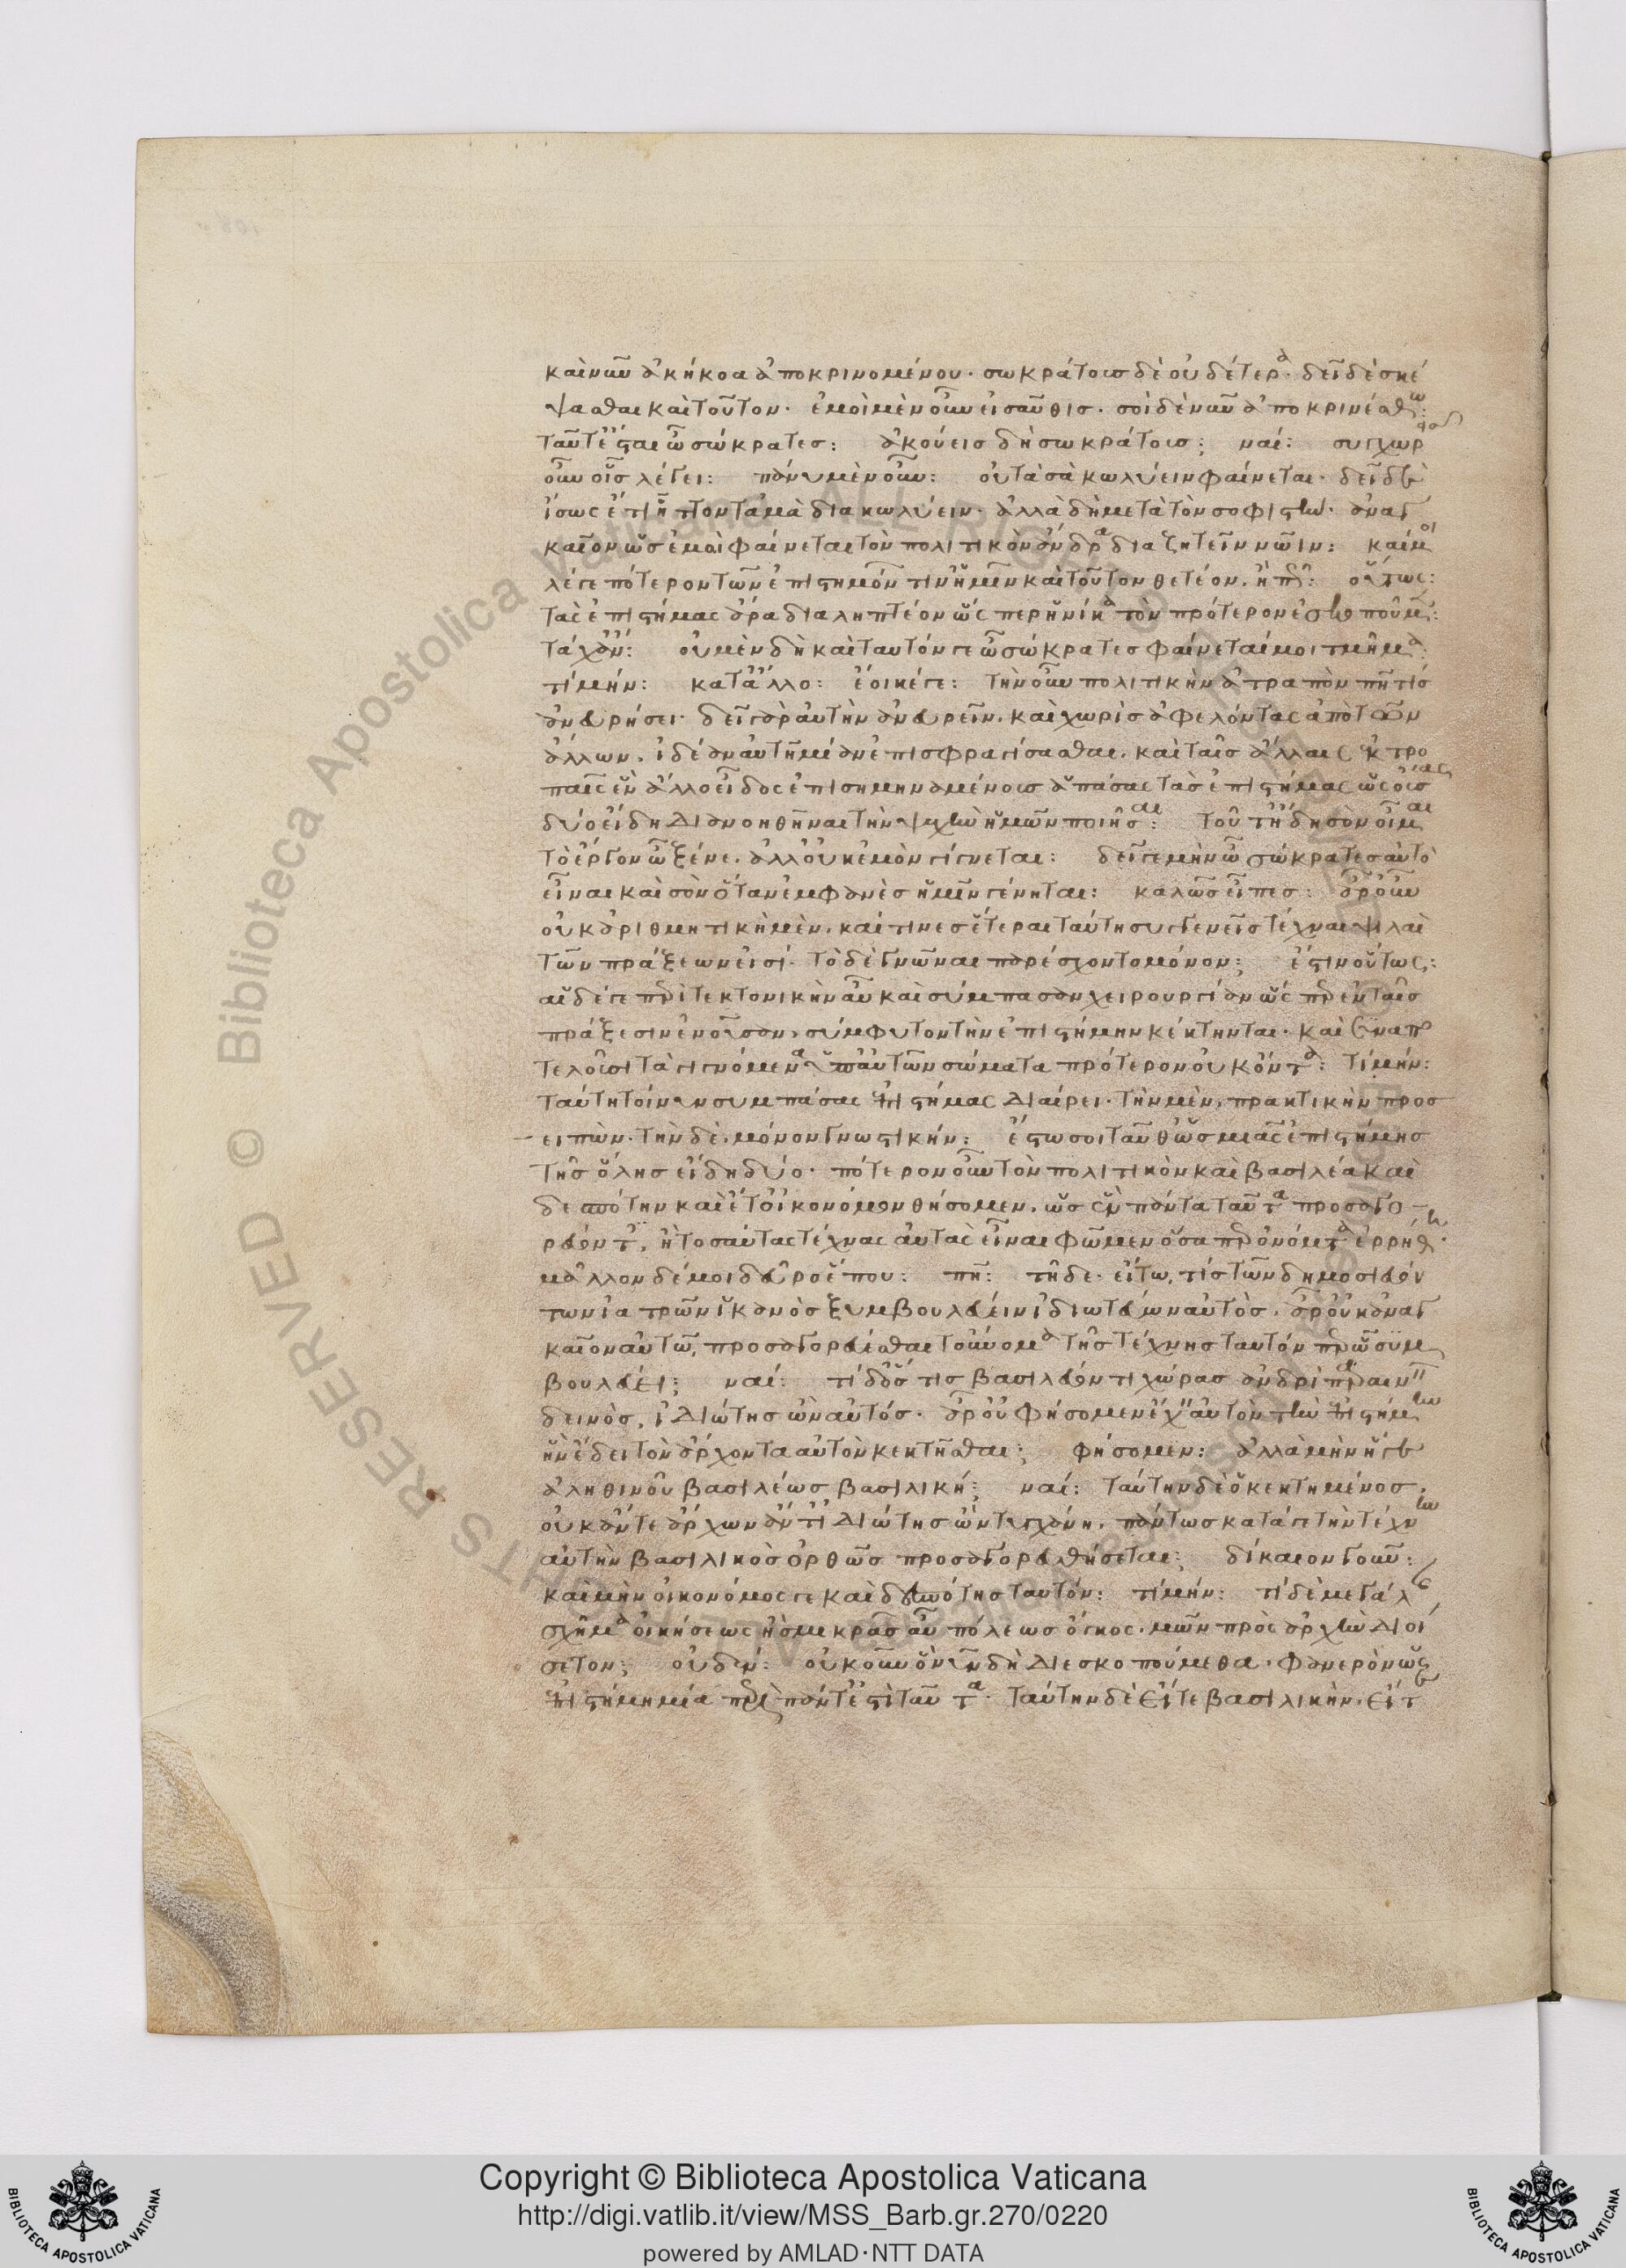 καὶ νῦν ἀκήκοα ἀποκρινομένου· σωκράτους δὲ οὐδέτερα· δεῖ δὲ σκέ
ψασθαι καὶ τοῦτον· ἐμοὶ μὲν οὖν εἰσαῦθις· σοὶ δὲ νῦν ἀποκρινέσθω:
ταῦτ' ἔσται ὦ σώκρατες: ἀκούεις δὴ σωκράτους; ναί: συγχωρ
οὖν οἷς λέγει: πάνυ μὲν οὖν: οὐ τὰ σὰ κωλύειν φαίνεται· δεῖ δὲ
ἴσως ἔτι ἧττον τἀμὰ διακωλύειν· ἀλλὰ δὴ μετὰ τὸν σοφιστὴν· ἀναγ
καῖον ὡς ἐμοὶ φαίνεται τὸν πολιτικὸν ἄνδρα διαζητεῖν νῶϊν: καί μοι
λέγε πότερον τῶν ἐπιστημόνων τιν' ἡμῖν καὶ τοῦτον θετέον, ἢ πῶς: οὕτως:
τὰς ἐπιστήμας ἄρα διαληπτέον ὥσπερ ἡνίκα τὸν πρότερον ἐσκοποῦμεν:
τάχ' ἄν: οὐ μὲν δὴ κατὰ ταυτόν γε ὦ σώκρατες φαίνεταί μοι τμῆμα:
τί μήν: κατ' ἄλλο: ἔοικέ γε: τὴν οὖν πολιτικὴν ἀτραπὸν πῇ τίς
ἀνευρήσει· δεῖ γὰρ αὐτὴν ἀνευρεῖν, καὶ χωρὶς ἀφελόντας ἀπὸ τῶν
ἄλλων, ἰδέαν αὐτῇ μίαν ἐπισφραγίσασθαι, καὶ ταῖς ἄλλαις ἐκτρο
παῖς ἓν ἄλλο εἶδος ἐπισημηναμένους ἁπάσας τὰς ἐπιστήμας ὡς οὔσας
δύο εἴδη διανοηθῆναι τὴν ψυχὴν ἡμῶν ποιῆσαι: τοῦτ' ἤδη σὸν οἶμαι
τὸ ἔργον ὦ ξένε, ἀλλ' οὐκ ἐμὸν γίγνεται: δεῖ γε μὴν ὦ σώκρατες αὐτὸ
εἶναι καὶ σὸν ὅταν ἐμφανὲς ἡμῖν γένηται: καλῶς εἶπες: ἆρ' οὖν
οὐκ ἀριθμητικὴ μὲν, καί τινες ἕτεραι ταύτῃ συγγενεῖς τέχναι ψιλαὶ
τῶν πράξεων εἰσί· τὸ δὲ γνῶναι παρέσχοντο μόνον; ἔστιν οὕτως:
αἱ δέ γε περὶ τεκτονικὴν αὖ καὶ σύμπασαν χειρουργίαν ὥσπερ ἐν ταῖς
πράξεσιν ἐνοῦσαν, σύμφυτον τὴν ἐπιστήμην κέκτηνται· καὶ συναπο
τελοῦσι τὰ γιγνόμενα ὑπ' αὐτῶν σώματα πρότερον οὐκ ὄντα: τί μήν:
ταύτῃ τοίνυν συμπάσας ἐπιστήμας διαίρει· τὴν μὲν, πρακτικὴν προσ
ειπών· τὴν δὲ, μόνον γνωστικήν: ἔστω σοι ταῦθ' ὡς μιᾶς ἐπιστήμης
τῆς ὅλης εἴδη δύο· πότερον οὖν τὸν πολιτικὸν καὶ βασιλέα καὶ
δεσπότην καὶ ἔτ' οἰκονόμον θήσομεν, ὡς ἓν πάντα ταῦτα προσαγο
ρεύοντες, ἢ τοσαύτας τέχνας αὐτὰς εἶναι φῶμεν ὅσα περ ὀνόματα ἐρρήθη·
μᾶλλον δέ μοι δεῦρο ἕπου: πῇ: τῇδε· εἴ τῳ, τίς τῶν δημοσιευόν
των ἰατρῶν ἱκανὸς ξυμβουλεύειν ἰδιωτεύων αὐτὸς, ἆρ' οὐκ ἀναγ
καῖον αὐτῶ, προσαγορεύεσθαι τοὔνομα τῆς τέχνης ταυτόν περ ὧ συμ
βουλεύει; ναί: τί δ' ὅς τις βασιλεύοντι χώρας ἀνδρὶ παραινεῖν
δεινὸς, ἰδιώτης ὢν αὐτός· ἆρ' οὐ φήσομεν ἔχειν αὐτὸν τὴν ἐπιστήμην
ἣν ἔδει τὸν ἄρχοντα αὐτὸν κεκτῆσθαι; φήσομεν: ἀλλὰ μὴν ἥ γε
ἀληθινοῦ βασιλέως βασιλική; ναί: ταύτην δὲ ὁ κεκτημένος,
οὐκ ἄν τε ἄρχων ἄν τ' ἰδιώτης ὢν τυγχάνῃ, πάντως κατά γε τὴν τέχνην
αὐτὴν βασιλικὸς ὀρθῶς προσαγορευθήσεται; δίκαιον γοῦν:
καὶ μὴν οἰκονόμος γε καὶ δεσπότης ταυτόν: τί μήν: τί δὲ μεγάλης
σχῆμα οἰκήσεως ἢ σμικρᾶς αὖ πόλεως ὄγκος, μῶν πρὸς ἀρχὴν διοί
σετον; οὐδέν: οὐκοῦν ὃ νῦν δὴ διεσκοπούμεθα, φανερὸν ὡς
ἐπιστήμη μία περὶ πάντ' ἐστὶ ταῦτα· ταύτην δὲ εἴτε βασιλικὴν, εἴτε